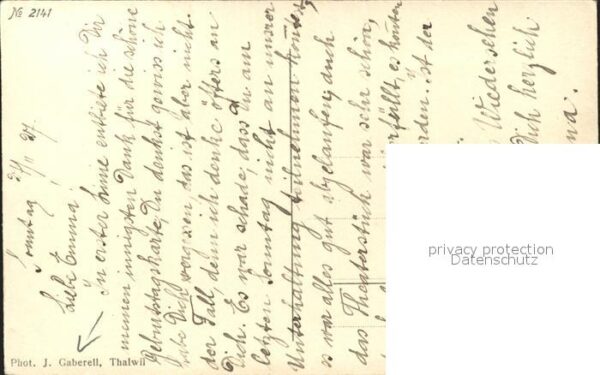 № 2141
Sonntag 27/11 27.
Liebe Emma!
In erster Linie entbiete ich Dir
meinen innigsten Dank für die schöne
Geburtstagskarte, Du denkst gewiss ich
habe Dich vergessen, das ist aber nicht
der Fall, denn ich denke öfters an
Dich. Es war schade, dass Du am
letzten Sonntag nicht an unserer
Unterhaltung teilnehmen könntest,
es war alles gut abgelaufen, auch
das Theaterstück war sehr schön,
es hätten
ist der
Wiedersehen
Dich herzlich
Phot. J. Gaberell, Thalwil
privacy protection
Datenschutz